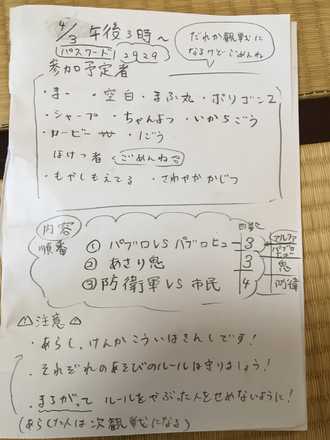 4/3 午後3時～
パスワード 2929
だれか観戦に
なるけどごめんね
参加予定者
・ま ・空白 ・まふ丸 ・ポリゴンZ
・シャープ ・ちゃんよつ ・いからごう
・カービー ・1ごう
ほけつ者 ごめんね
・もやしもえてる ・さわやかかじつ
内容
順番
回数
①パブロVSパブロヒュー 3
②あさり鬼 3 鬼
③防衛軍VS市民 4 防衛
⚠注意⚠
・あらし、けんかこういはきんしです!
・それぞれのあそびのルールは守りましょう!
・まちがって ルールをやぶった人をせめないように!
(あらした人は次観戦になる)